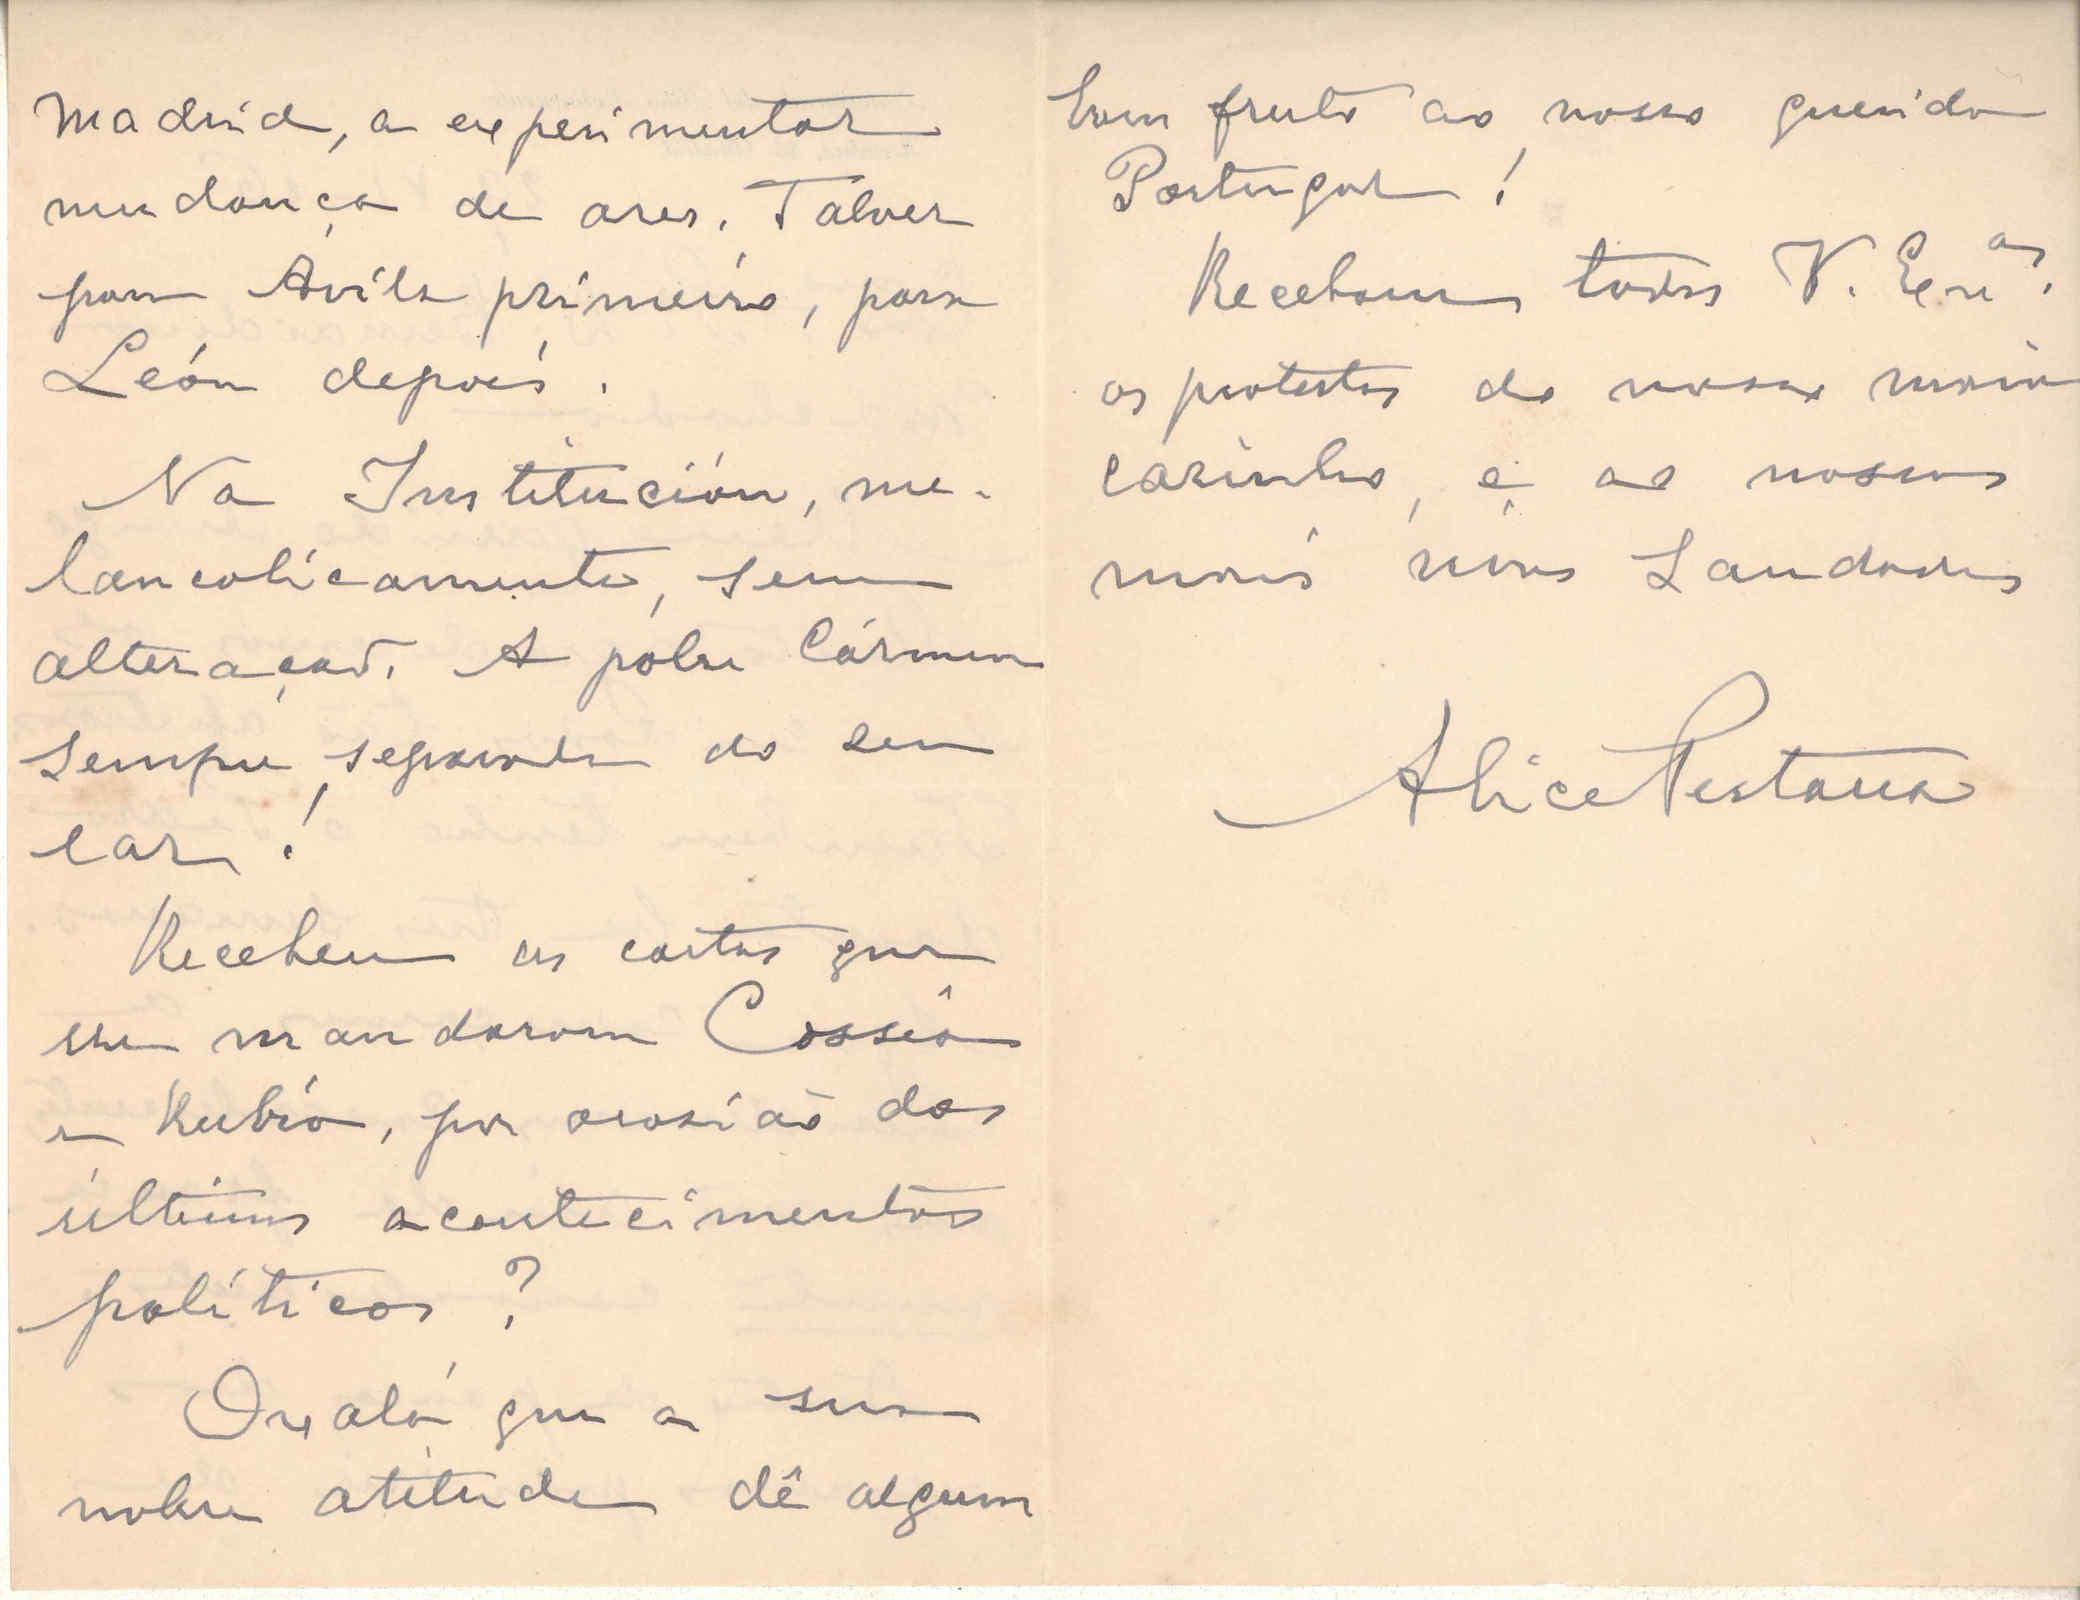 Madrid, a experimentar
mudança de ares. Talvez
para Ávila primeiro, para
León depois.
Na Institución, me-
lancolicamente, sem
alteração. A pobre Cármen
sempre separada do seu
lar!
Recebeu as cartas que
lhe mandaram Cossío
e Rubio, por ocasião dos
últimos acontecimentos
políticos?
Oxalá que a sua
nobre atitude dê algum
bom fruto ao nosso querido
Portugal!
Recebam todos V. Ex.as
os protestos do nosso maior
carinho, e as nossas
mais vivas saudades
Alice Pestana